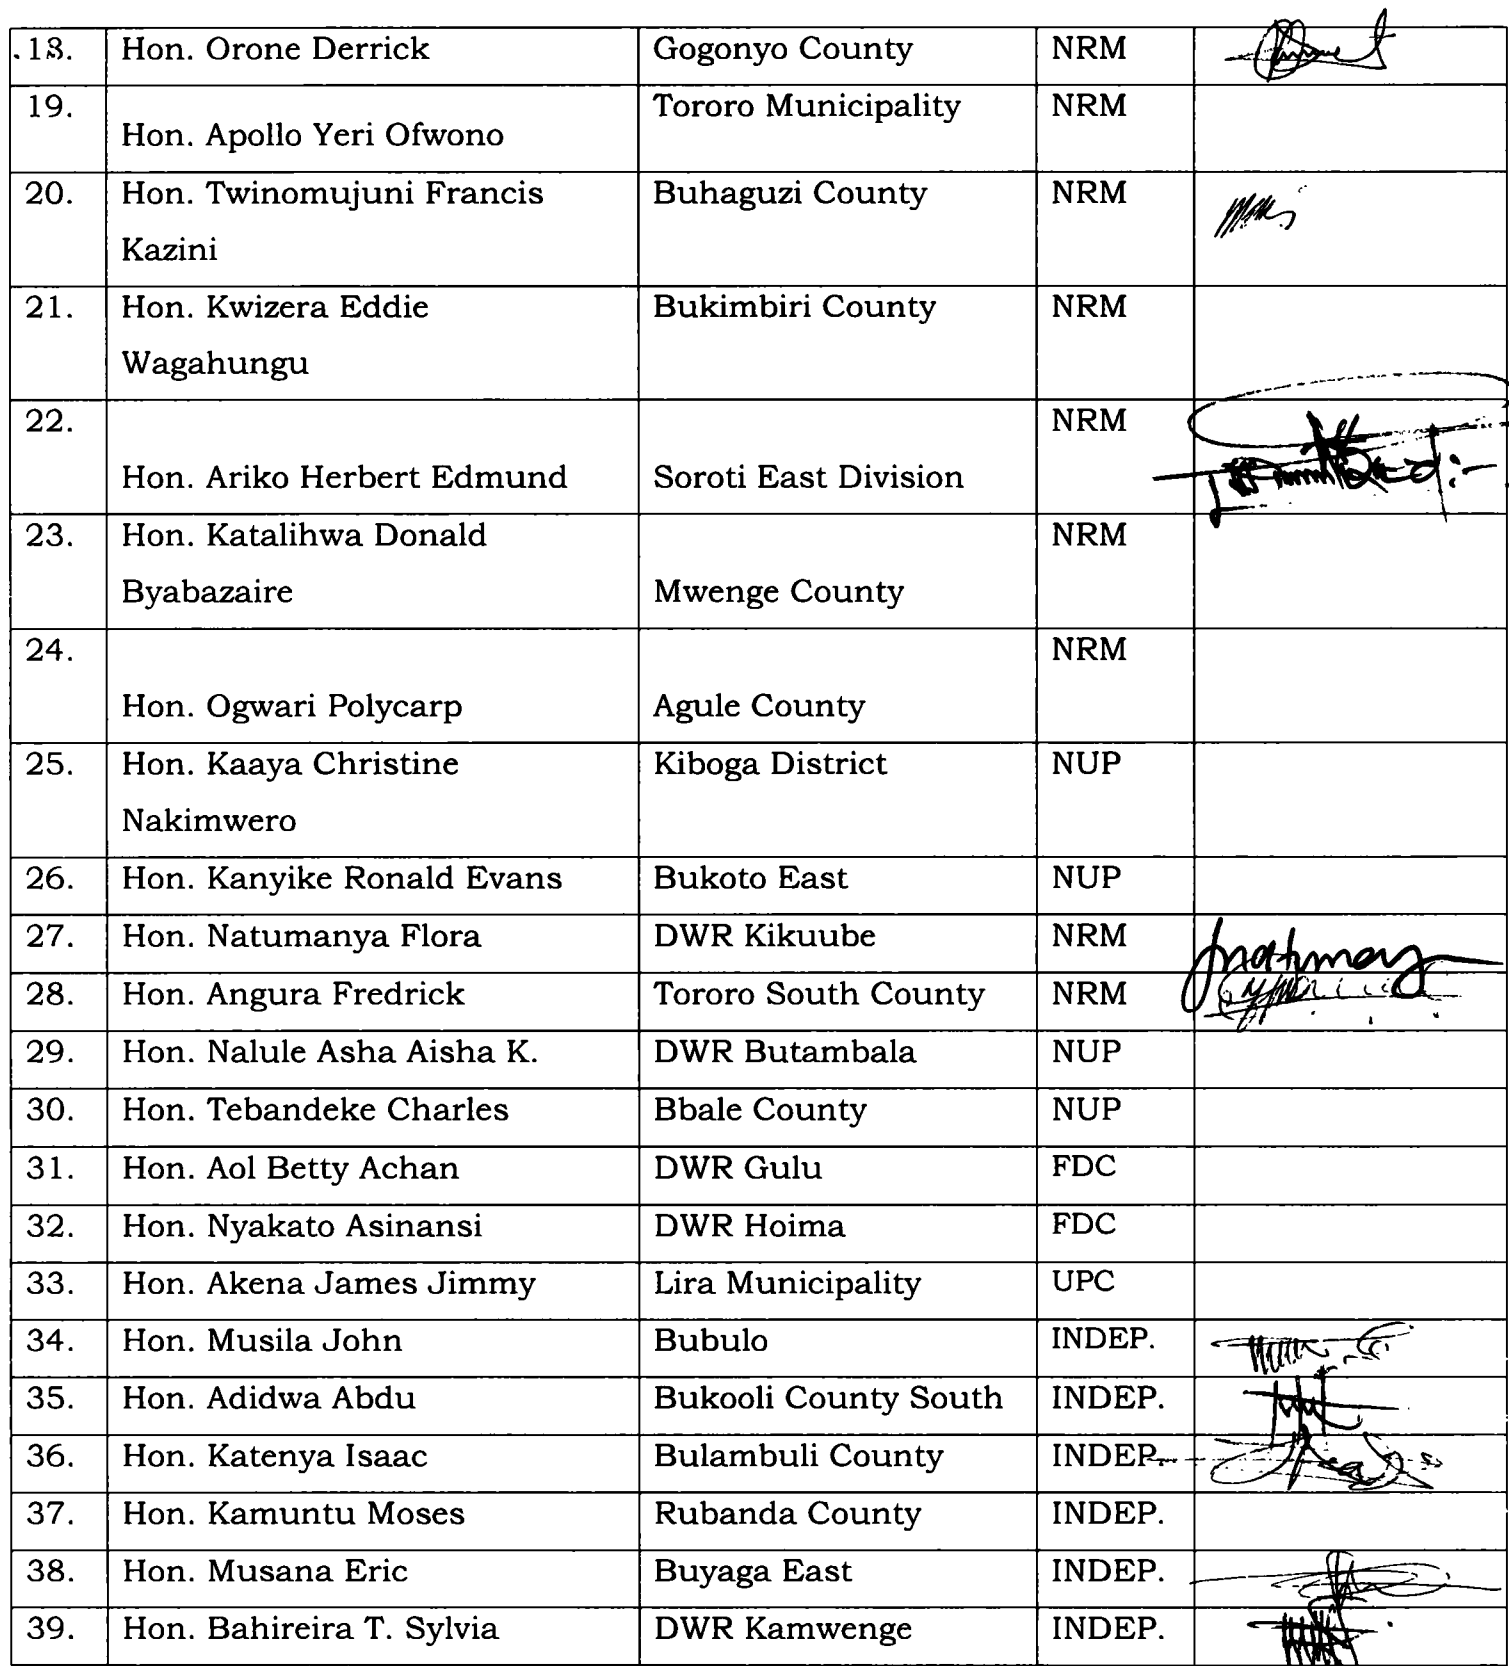 .18. Hon. Orone Derrick Gogonyo County NRM
19. Tororo Municipality NRM
Hon. Apollo Yeri Ofwono
20. Hon. Twinomujuni Francis Buhaguzi County NRM
Kazini
21. Hon. Kwizera Eddie Bukimbiri County NRM
Wagahungu
22. NRM
Hon. Ariko Herbert Edmund Soroti East Division
23. Hon. Katalihwa Donald NRM
Byabazaire Mwenge County
24. NRM
Hon. Ogwari Polycarp Agule County
25. Hon. Kaaya Christine Kiboga District NUP
Nakimwero
26. Hon. Kanyike Ronald Evans Bukoto East NUP
27. Hon. Natumanya Flora DWR Kikuube NRM
28. Hon. Angura Fredrick Tororo South County NRM
29. Hon. Nalule Asha Aisha K. DWR Butambala NUP
30. Hon. Tebandeke Charles Bbale County NUP
31. Hon. Aol Betty Achan DWR Gulu FDC
32. Hon. Nyakato Asinansi DWR Hoima FDC
33. Hon. Akena James Jimmy Lira Municipality UPC
34. Hon. Musila John Bubulo INDEP.
35. Hon. Adidwa Abdu Bukooli County South INDEP.
36. Hon. Katenya Isaac Bulambuli County INDEP.
37. Hon. Kamuntu Moses Rubanda County INDEP.
38. Hon. Musana Eric Buyaga East INDEP.
39. Hon. Bahireira T. Sylvia DWR Kamwenge INDEP.